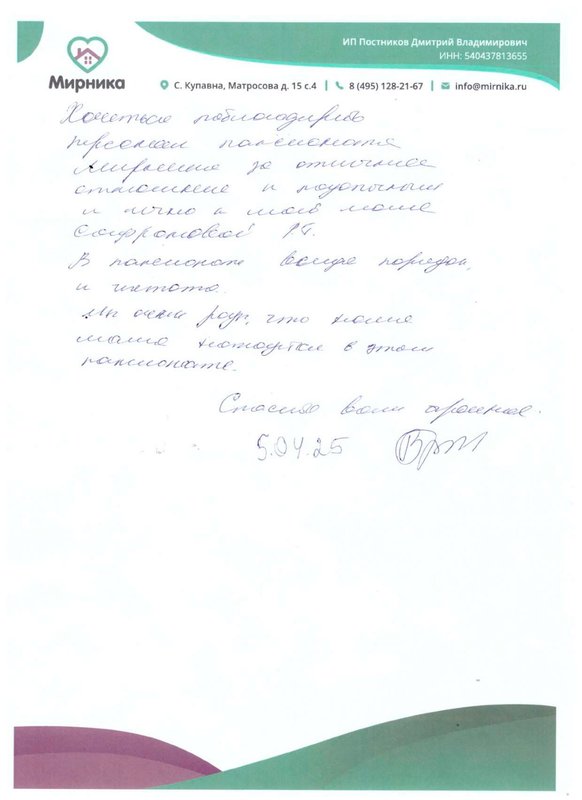 ИП Постников Дмитрий Владимирович
ИНН: 540437813655
Мирника
С. Купавна, Матросова д. 15 с.4 | 8 (495) 128-21-67 | info@mirnika.ru
Хочеться поблагодарить
персонал пансионата
Мирника за отличное
отношение к подопечным
и лично к моей маме
Сафроновой Р.Г.
В пансионате всегда порядок,
и чистота.
Мы очень рады, что наша
мама находится в этом
пансионате.
Спасибо вам огромное.
5.04.25